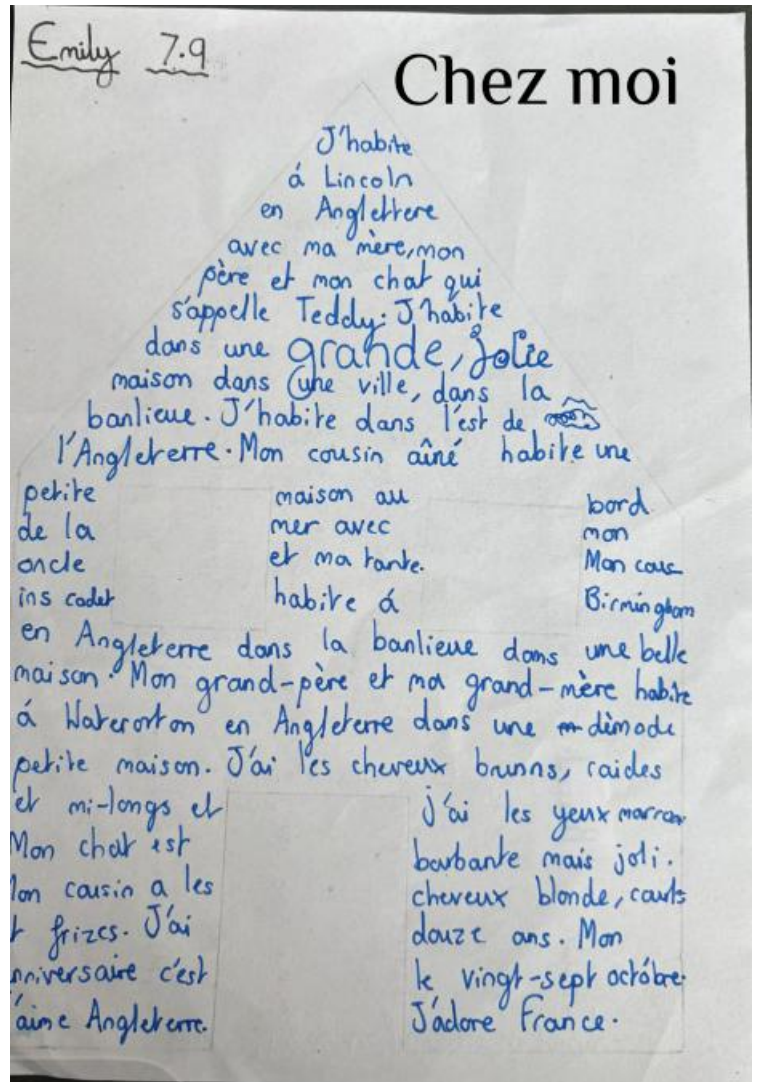 Emily 7.9
Chez moi
J'habite
á Lincoln
en Anglettere
avec ma mère, mon
père et mon chat qui
s'appelle Teddy. J'habite
dans une grande, jolie
maison dans une ville, dans la
banlieue. J'habite dans l'est de
l'Angleterre. Mon cousin aîné habite une
petite maison au bord
de la mer avec mon
oncle et ma tante. Mon cous
ins cadet habite á Birmingham
en Angleterre dans la banlieue dans une belle
maison. Mon grand-père et ma grand-mère habite
á Waterorton en Angleterre dans une dèmode
petite maison. J'ai les cheveux brunns, raides
et mi-longs et j'ai les yeux marron
Mon chat est barbante mais joli.
on cousin a les cheveux blonde, courts
t frizes. J'ai douze ans. Mon
nniversaire c'est le vingt-sept octóbre.
'aime Angleterre. J'adore France.